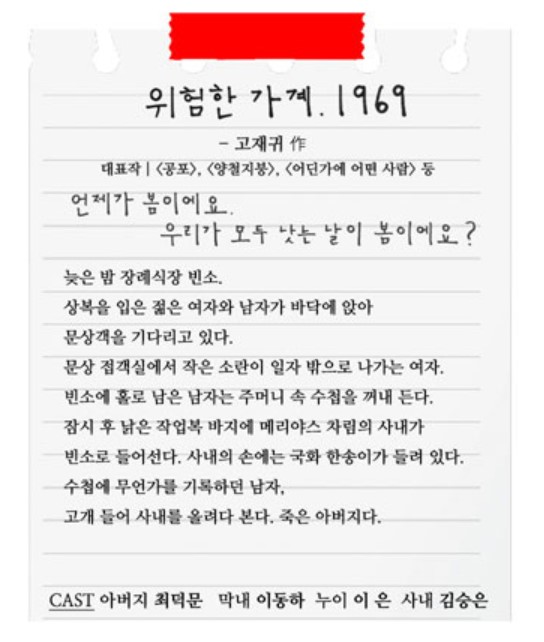 위험한 가계. 1969
- 고재귀 作
대표작 | <공포>, <양철지붕>, <어딘가에 어떤 사람> 등
언제가 봄이에요.
우리가 모두 낫는 날이 봄이에요?
늦은 밤 장례식장 빈소.
상복을 입은 젊은 여자와 남자가 바닥에 앉아
문상객을 기다리고 있다.
문상 접객실에서 작은 소란이 일자 밖으로 나가는 여자.
빈소에 홀로 남은 남자는 주머니 속 수첩을 꺼내 든다.
잠시 후 낡은 작업복 바지에 메리야스 차림의 사내가
빈소로 들어선다. 사내의 손에는 국화 한송이가 들려 있다.
수첩에 무언가를 기록하던 남자,
고개 들어 사내를 올려다 본다. 죽은 아버지다.
CAST 아버지 최덕문 막내 이동하 누이 이 은 사내 김승은